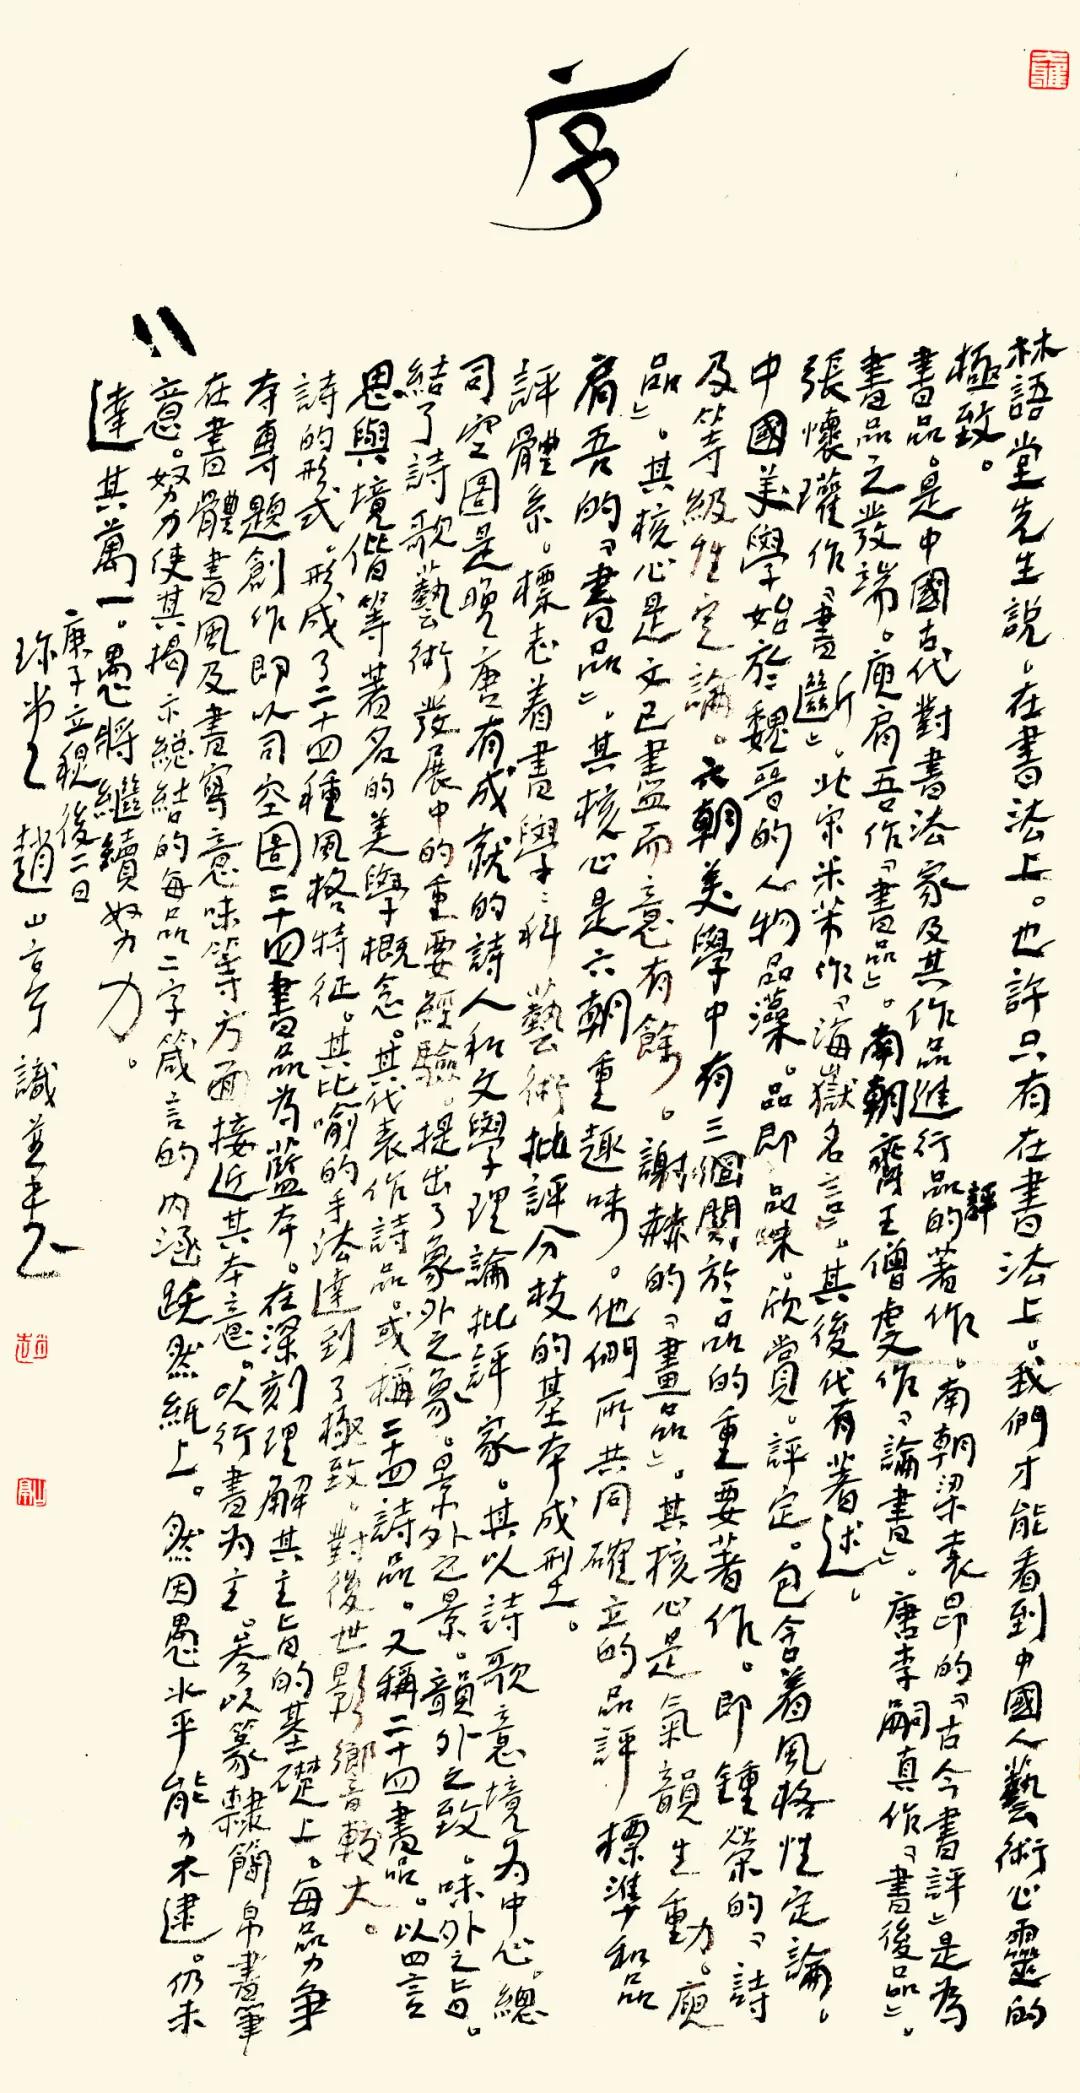 序
林語堂先生說。在書法上。也許只有在書法上。我們才能看到中國人藝術心靈的
極致。
書品。是中國古代對書法家及其作品進行品評的著作。南朝梁袁昂的「古今書評」是為
書品之發端。庾肩吾作「書品」。南朝齊王僧虔作「論書」。唐李嗣真作「書後品」。
張懷瓘作「書斷」。北宋米芾作「海嶽名言」。其後代有著述。
中國美學始於魏晉的人物品藻。品即品味。欣賞。評定。包含着風格性定論。
及等級性定論。六朝美學中有三個關於品的重要著作。即鍾榮的「詩
品」。其核心是文已盡而意有餘。謝赫的「畫品」。其核心是氣韻生動。庾
肩吾的「書品」。其核心是六朝重趣味。他們所共同確立的品評標準和品
評體系。標志着書學學科藝術批評分枝的基本成型。
司空圖是晚唐有成就的詩人和文學理論批評家。其以詩歌意境为中心。總
結了詩歌藝術發展中的重要經驗。提出了象外之象。景外之景。韻外之致。味外之旨。
思與境偕等著名的美學概念。其代表作詩品。或稱二十四詩品。又稱二十四書品。以四言
詩的形式。形成了二十四種風格特征。其比喻的手法達到了極致。對後世影響較大。
本專題創作即以司空圖二十四書品為藍本。在深刻理解其主旨的基礎上。每品力争
在書體書風及書寫意味等方面接近其本意。以行書为主。参以篆隸簡帛書筆
意。努力使其揭示總結的每品二字箴言的内涵躍然紙上。然因愚水平能力不逮。仍未
達其萬一。愚將繼續努力。
庚子立秋後二日
趙山亭識並書